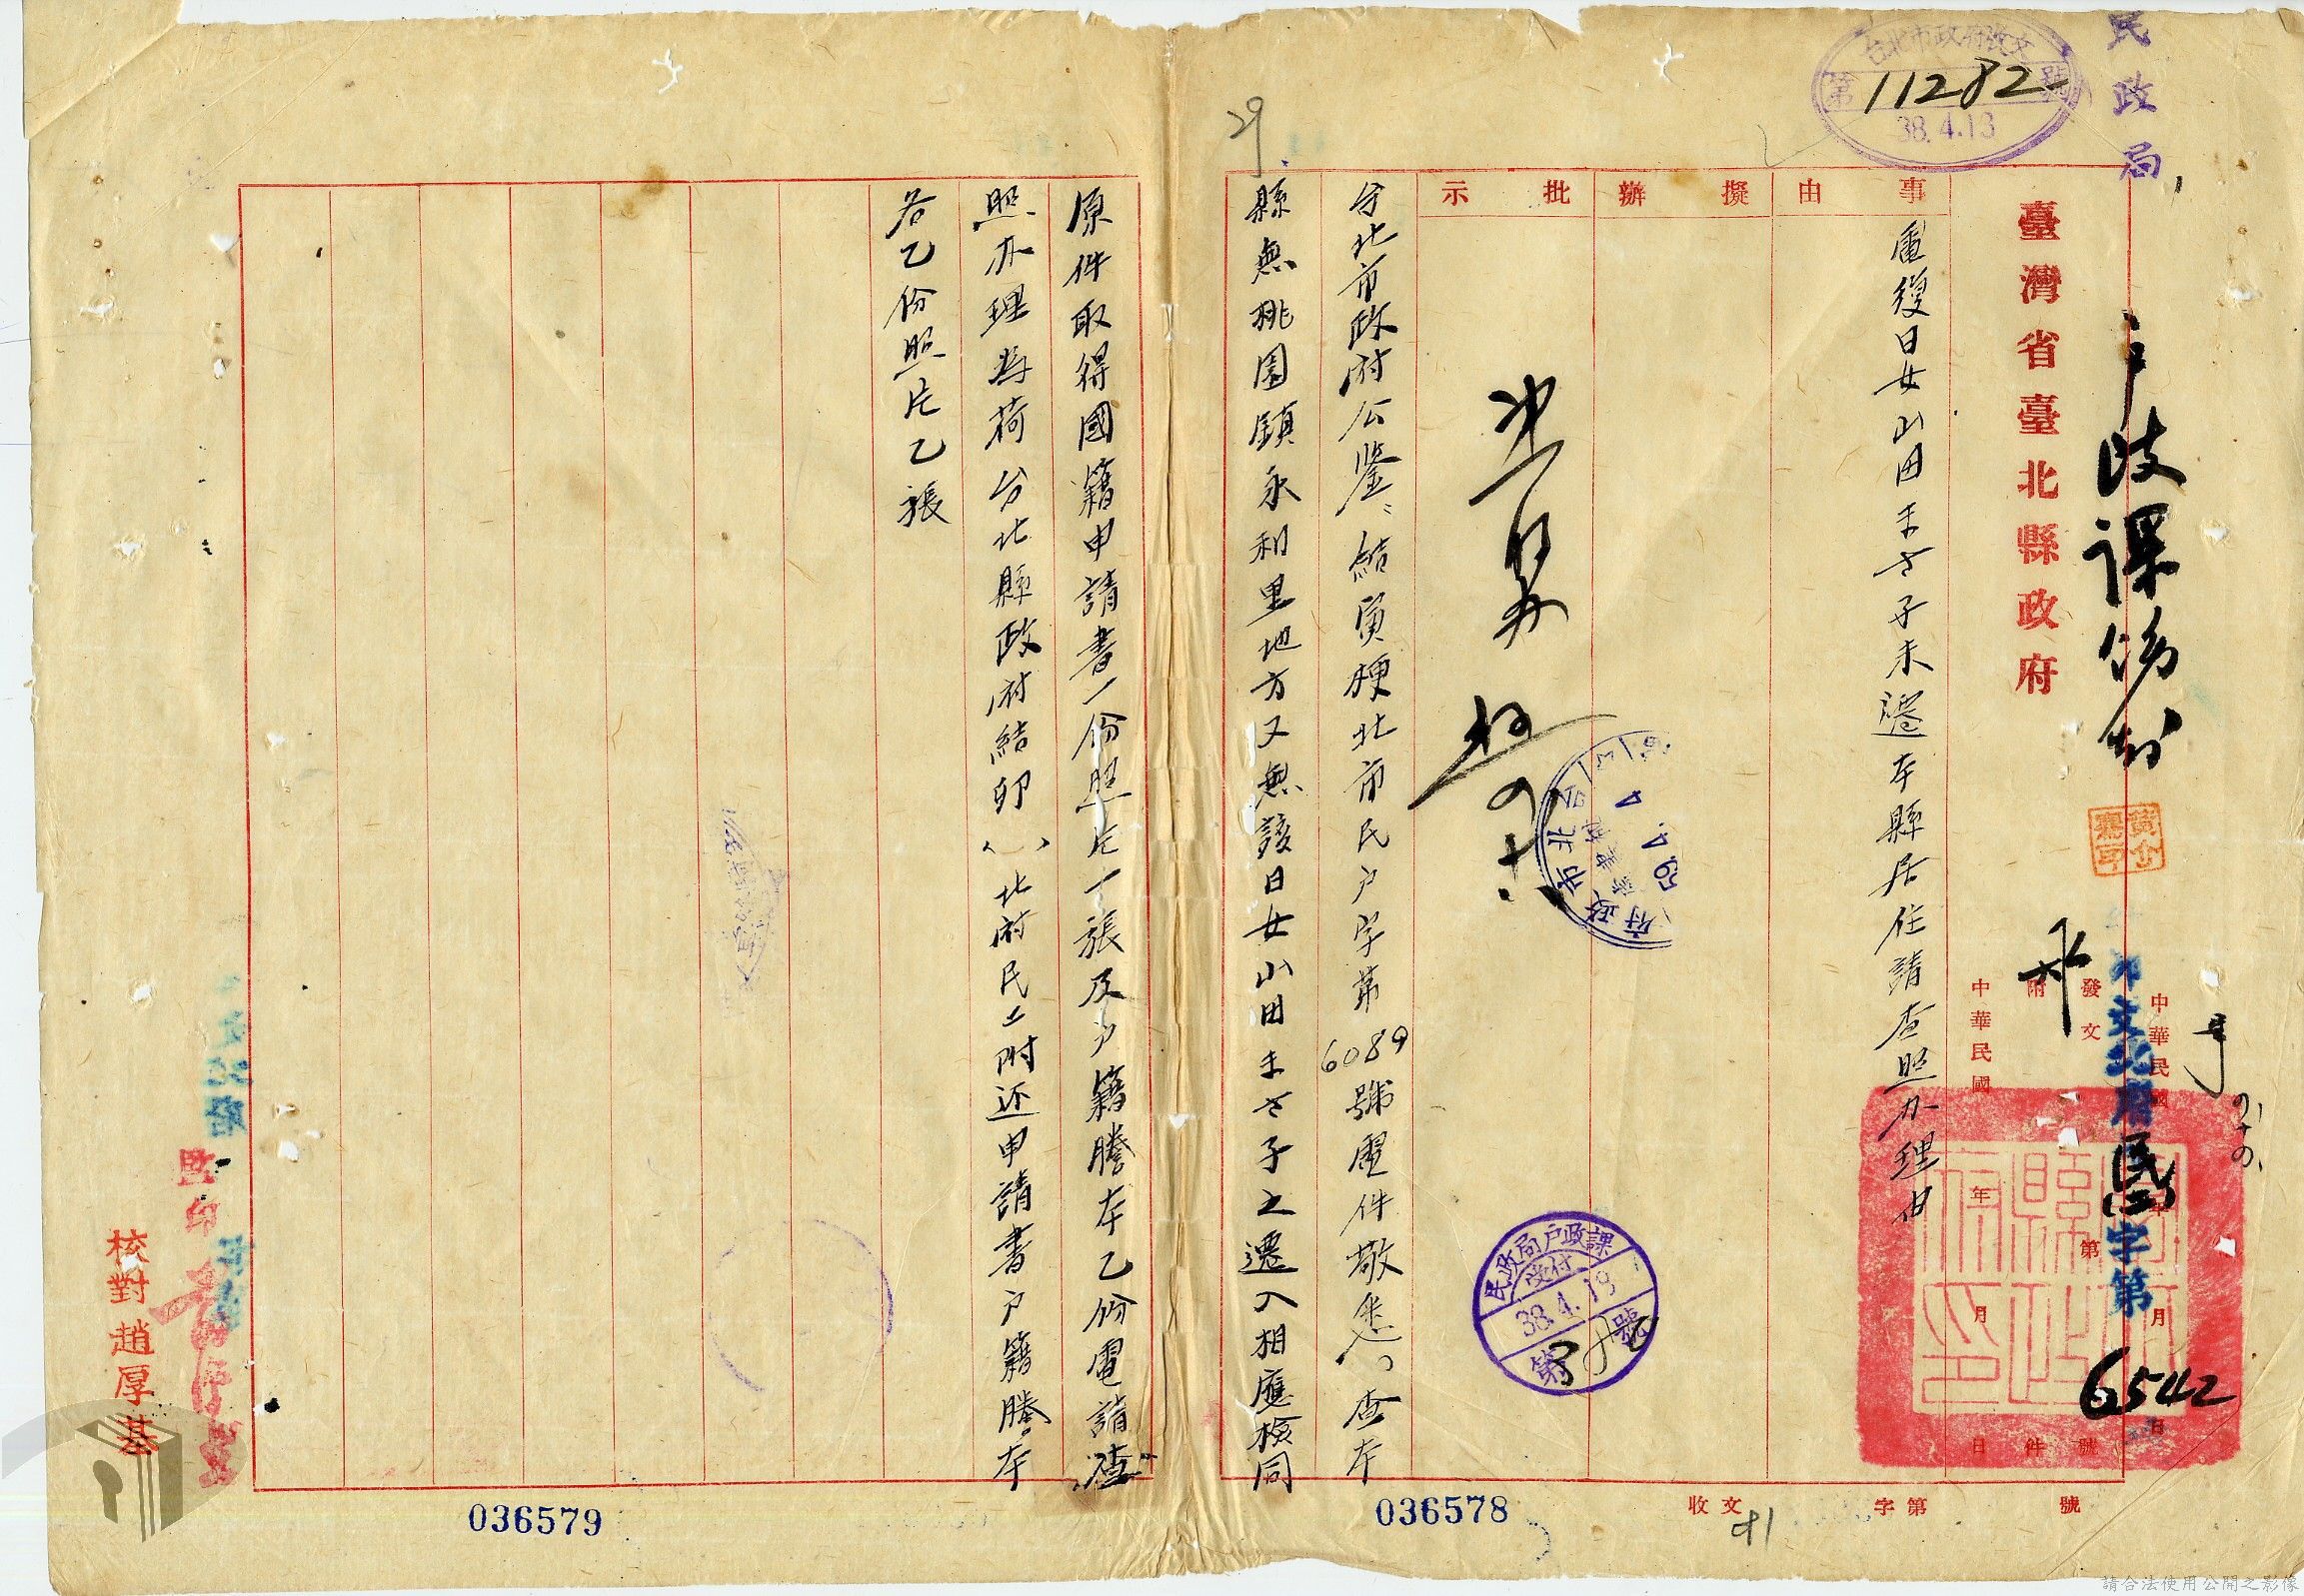 民政局
台北市政府收文
第11282號
38.4.13
臺灣省臺北縣政府
中華民國 年 月 日
發文 字第6542號
附 件
中華民國 年 月 日
事由
擬辦
批示
電復日女山田すさ子未遷本縣居住請查照办理由
民政局戶政課
收付
38.4.19
第 號
台北市政府
台北市政府公鑒：結寅梗北市民戶字第6089號電件敬悉(一)查本
縣無桃園鎮永和里地方又無該日女山田すさ子之遷入相應檢同
原件取得國籍申請書一份照片一張及戶籍謄本乙份電請查
照办理為荷台北縣政府結卯( )北府民上附还申請書戶籍謄本
各乙份照片乙張
監印
校對趙厚基
收文 字第 號
91
29
036578
036579
請合法使用公開之影像